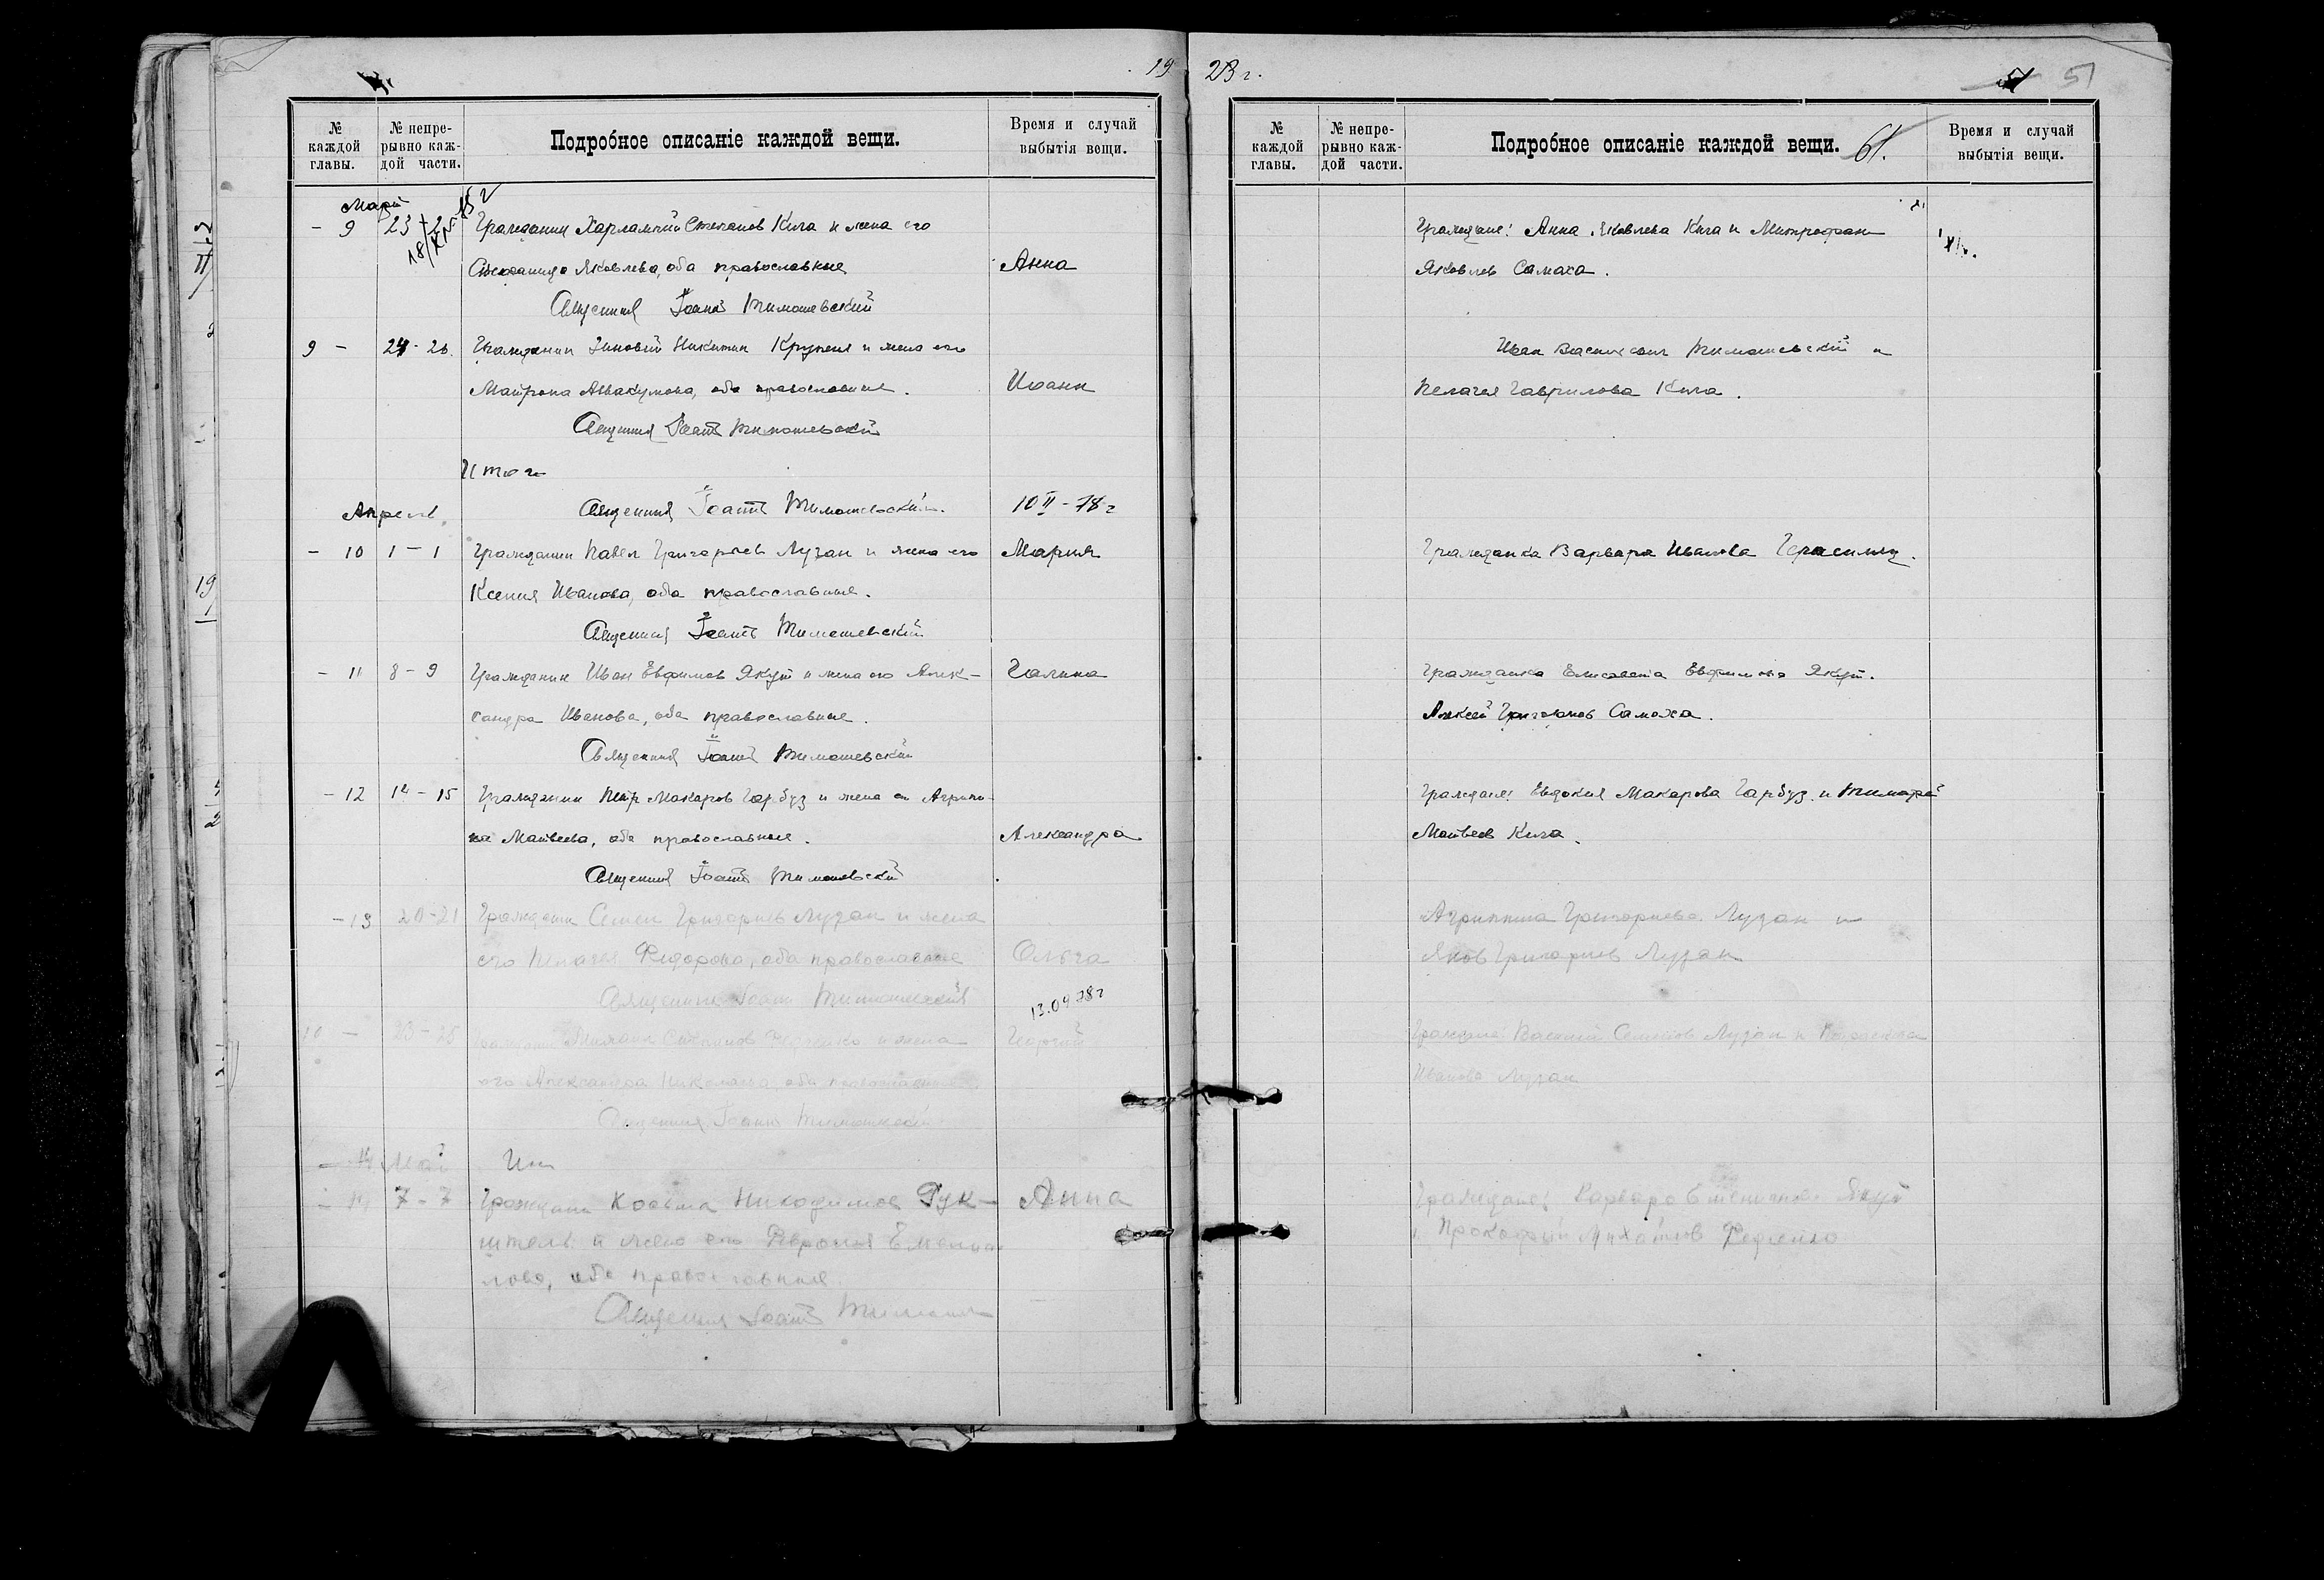 19
№ каждой главы.
№ непре-рывно каж-дой части.
Подробное описаніе каждой вещи.
Время и случай выбытія вещи.
Март
- 9 23
Гражданин Харлампий Степанов Кига и жена его
Яковлева, оба православные
Анна
Священник Іоанн Тимошевский
9 - 24 - 26.
Гражданин Зиновий Никитин и жена его
Матрона Аввакумова, оба православные.
Иоанн
Священник Іоанн Тимошевский
Итого
Апрель.
Священник Іоанн Тимошевский.
10 II - 78 г
- 10 1 - 1
Гражданин Павел Григорьев Лузан и жена его
Мария
Ксения Иванова, оба православные.
Священник Іоанн Тимошевский
- 11 8 - 9
Гражданин Иван Евфимов Якут и жена его Алек-
Галина
сандра Иванова, оба православные.
Священник Іоанн Тимошевский
- 12 14 - 15
Гражданин Петр Макаров Гарбуз и жена его Агрипи-
на Матвеева, оба православные.
Александра
Священник Іоанн Тимошевский
- 13 20 - 21
Гражданин Семен Григорьев Лузан и жена
его Пелагея Федорова, оба православные
Ольга
Священник Іоанн Тимошевский
13.04 78 г
10 - 23 - 25
Степанов и жена
Георгий
его Александра Николаева, оба православные.
Священник Іоанн Тимошевский
Май
7 - 7
Гражданин Косьма Никодимов
Анна
и жена его Феврония Емелиа-
нова, оба православные.
Священник Іоанн
23 г.
51
№ каждой главы.
№ непре-рывно каж-дой части.
Подробное описаніе каждой вещи.
61.
Время и случай выбытія вещи.
Граждане: Анна Яковлева Кига и Митрофан
Яковлев Самоха.
Иван Васильевич Тимошевский и
Пелагея Гаврилова Кига.
Гражданка Варвара Иванова Герасимец.
Гражданка Елисавета Евфимова Якут.
Алексей Григорьев Самоха.
Граждане: Евдокия Макарова Гарбуз и Тимофей
Матвеев Кига.
Агрипина Григорьева Лузан и
Яков Григорьев Лузан
Граждане: Василий Семенов Лузан и
Иванова Лузан
Граждане: Варвара Якут
и Прокофий Михайлов Федченко